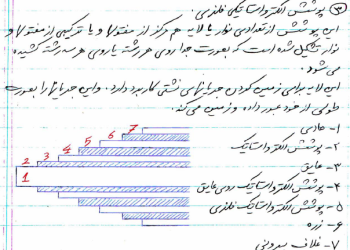 ③ پوشش الکترواستاتیکی فلزی.
این پوشش از تعدادی نوار یا لایه هم مرکز از مفتول و یا ترکیبی از مفتول و
نوار تشکیل شده است که بصورت جدا روی هر رشته یا روی هر سه رشته کشیده
می شود.
این لایه برای زمین کردن جریانهای نشتی کاربرد دارد. و این جریانها را بصورت
طولی از خود عبور داده و زمین می کند.
۱- هادی
۲- پوشش الکترواستاتیک
۳- عایق
۴- پوشش الکترواستاتیک روی عایق
۵- پوشش الکترواستاتیک فلزی
۶- زره
۷- غلاف بیرونی
7
6
5
4
3
2
1